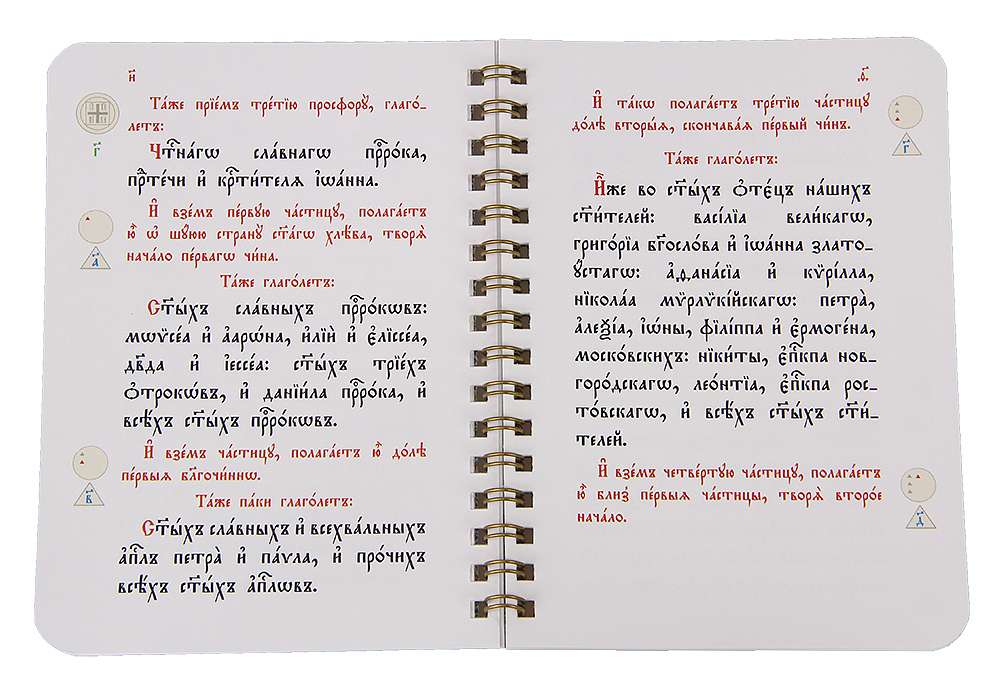 и҃
Та́же прїе́мъ тре́тїю просфорꙋ̀, глаго́-
летъ:
г҃
Чⷭ҇тна́гѡ сла́внагѡ прⷪ҇ро́ка,
прⷣте́чи и҆ крⷭ҇ти́телѧ і҆ѡа́нна.
И҆ взе́мъ пе́рвꙋю части́цꙋ, полага́етъ
ю҆̀ ѡ҆ шꙋ́юю странꙋ̀ ст҃а́гѡ хлѣ́ба, творѧ̀
нача́ло пе́рвагѡ чи́на.
а҃
Та́же глаго́летъ:
Ст҃ы́хъ сла́вныхъ прⷪ҇ро́кѡвъ:
мѡѷсе́а и҆ а҆арѡ́на, и҆лїѝ и҆ є҆лїссе́а,
дв҃да и҆ і҆ессе́а: ст҃ы́хъ трїе́хъ
ѻ҆трокѡ́въ, и҆ данїи́ла прⷪ҇ро́ка, и҆
всѣ́хъ ст҃ы́хъ прⷪ҇ро́кѡвъ.
И҆ взе́мъ части́цꙋ, полага́етъ ю҆̀ до́лѣ
пе́рвыѧ бл҃гочи́ннѡ.
в҃
Та́же па́ки глаго́летъ:
Ст҃ы́хъ сла́вныхъ и҆ всехва́льныхъ
а҆пⷭ҇лъ петра̀ и҆ па́ѵла, и҆ про́чихъ
всѣ́хъ ст҃ы́хъ а҆пⷭ҇лѡвъ.
ѳ҃
И҆ та́кѡ полага́етъ тре́тїю части́цꙋ
до́лѣ вторы́ѧ, сконча́ваѧ пе́рвый чи́нъ.
г҃
Та́же глаго́летъ:
И҆̀же во ст҃ы́хъ ѻ҆тє́цъ на́шихъ
ст҃и́телей: васі́лїа вели́кагѡ,
григо́рїа бг҃осло́ва и҆ і҆ѡа́нна злато-
ꙋ́стагѡ: а҆ѳана́сїа и҆ кѷрі́лла,
нїкола́а мѷрлѷкі́йскагѡ: петра̀,
а҆леѯі́а, і҆ѡ́ны, фїлі́ппа и҆ є҆рмоге́на,
моско́вскихъ: нїки́ты, є҆пⷭ҇кпа нов-
горо́дскагѡ, лео́нтїа, є҆пⷭ҇кпа рос-
то́вскагѡ, и҆ всѣ́хъ ст҃ы́хъ ст҃и́-
телей.
И҆ взе́мъ четве́ртꙋю части́цꙋ, полага́етъ
ю҆̀ бли́з̾ пе́рвыѧ части́цы, творѧ̀ второ́е
нача́ло.
д҃